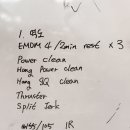 1. 역도
EMOM 4 / 2min rest × 3
Power clean
Hang Power clean
Hang SQ clean
Thruster
Split Jerk
1R